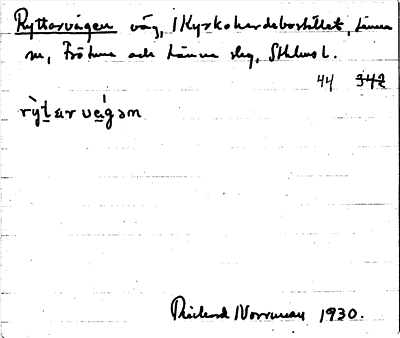 Ryttarvägen väg, i Kyrkoherdebostället, Länna
sn, Fröåkers och Länna skg, Sthlms l.
44 342
rỳt̲ar vɛ́gən
Rickard Norrman 1930.